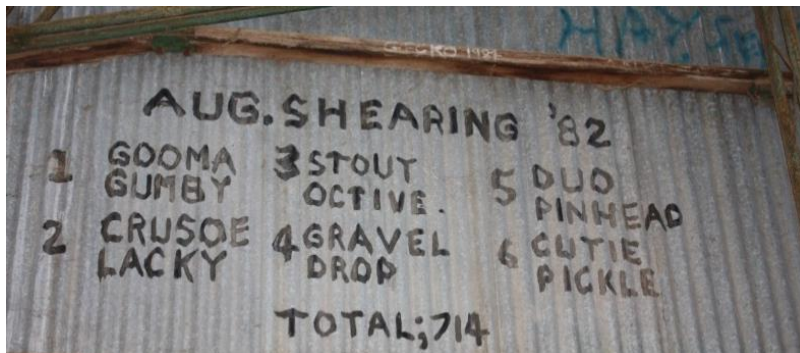 HAY. SE
AUG. SHEARING '82
1 GOOMA
GUMBY
2 CRUSOE
LACKY
3 STOUT
OCTIVE.
4 GRAVEL
DROP
5 DUO
PINHEAD
6 CUTIE
PICKLE
TOTAL; 714